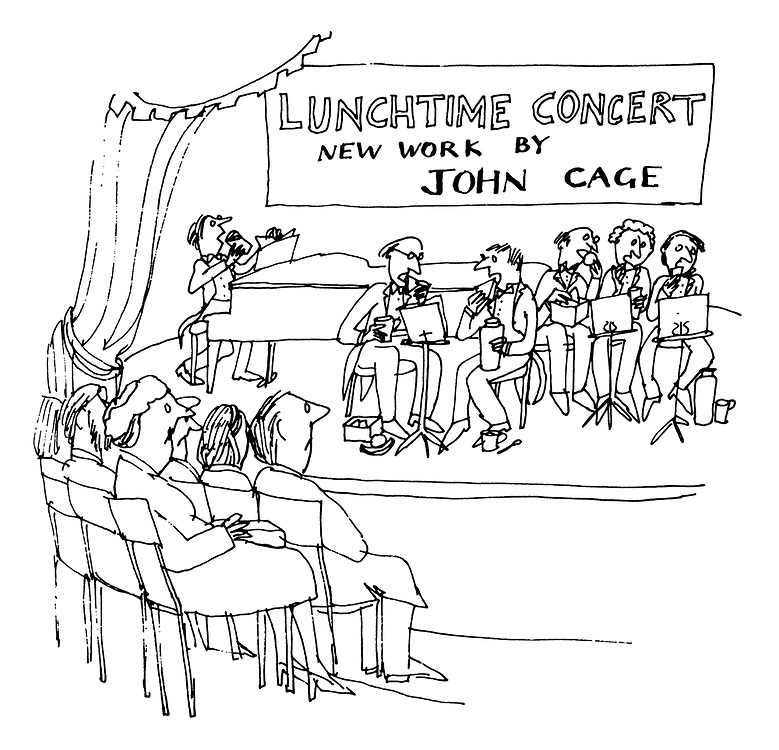 LUNCHTIME CONCERT
NEW WORK BY
JOHN CAGE